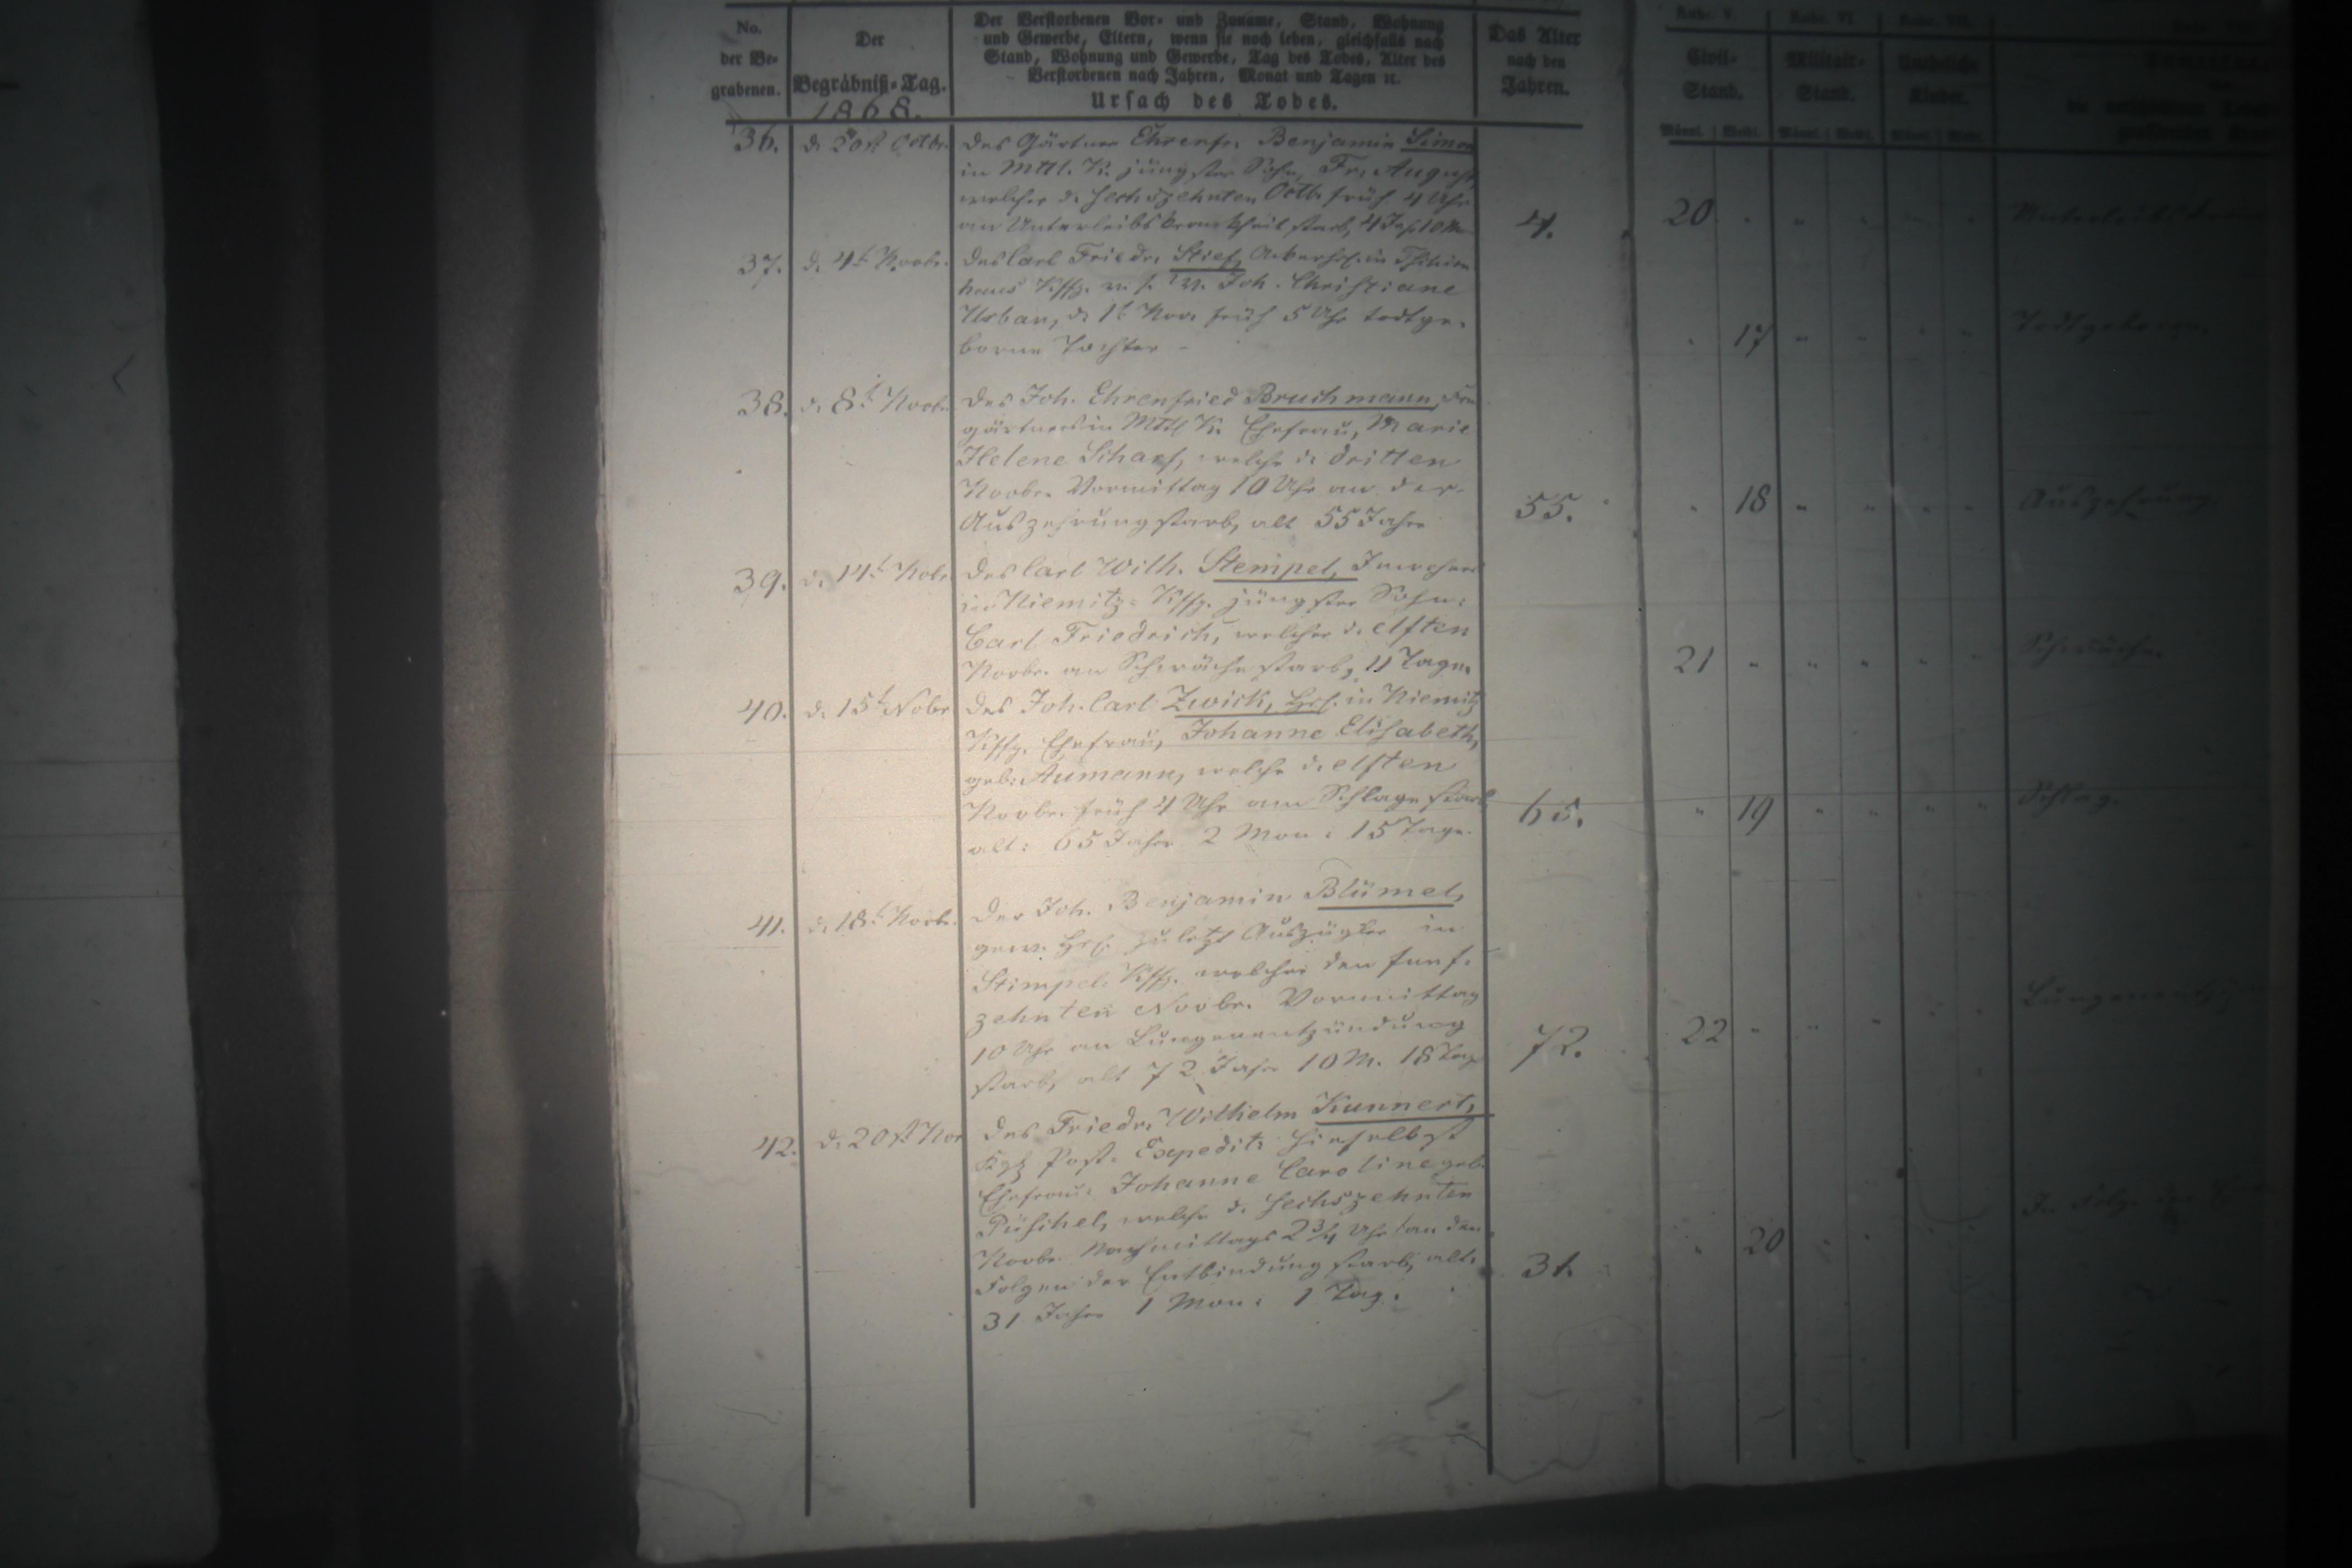 No.
der Be=
grabenen.
Der
Begräbniß=Tag.
1868.
Der Verstorbenen Vor= und Zuname, Stand, Wohnung
und Gewerbe, Eltern, wenn sie noch leben, gleichfalls nach
Stand, Wohnung und Gewerbe, Tag des Todes, Alter des
Verstorbenen nach Jahren, Monat und Tagen ꝛc.
Ursach des Todes.
Das Alter
nach den
Jahren.
Rubr. V.
Civil=
Stand.
Männl. Weibl.
Rubr. VI
Militair=
Stand.
Männl. Weibl.
Rubr. VII.
Uneheliche
Kinder.
Männl. Weibl.
36. d. 20st Octbr. des Gärtner Ehrenfr. Benjamin Simon
in Mttl. K. jüngster Sohn, Fr. August,
welcher d. sechszehnten Octb. früh 4 Uhr
an Unterleibskrankheit starb, 4 Jah. 10 M. 4. 20
37. d. 4t Novbr. des Carl Friedr. Stief, in
haus Kssg. u. s. W. Joh. Christiane
Urban, d. 1t Nov. früh 5 Uhr todtge=
borne Tochter 17 Todtgeboren
38. d. 8t Novbr. des Joh. Ehrenfried Bruchmann,
gärtners in Mttl K. Ehefrau, Marie
Helene Scharf, welche d. dritten
Novbr. Vormittag 10 Uhr an der
Auszehrung starb, alt 55 Jahre 55. 18 Auszehrung
39. d. 14t Nobr. des Carl Wilh. Stempel, Inwohner
in Niemitz= Kssg. jüngster Sohn:
Carl Friedrich, welcher d. elften
Novbr. an Schwäche starb, 11 Tage. 21 Schwäche
40. d. 15t Nobr. des Joh. Carl Zwick, Hrsl. in Niemitz
Kssg. Ehefrau, Johanne Elisabeth,
geb. Aumann, welche d. elften
Novbr. früh 4 Uhr am Schlage starb
alt: 65 Jahr 2 Mon: 15 Tage. 65. 19 Schlag.
41. d. 18t Novbr. Der Joh. Benjamin Blümel,
gew. Hrsl. zuletzt Auszügler in
Stimpel. Kssg. welcher den funf=
zehnten Novbr. Vormittag
10 Uhr an Lungenentzündung
starb, alt 72 Jahr 10 M. 18 Tag 72. 22
42. d. 20st Nov des Friedr. Wilhelm Kunnert,
Kgl Post. Expedit. hieselbst
Ehefrau: Johanne Caroline geb.
Püschel, welche d. sechszehnten
Novbr. Nachmittags 2 3/4 Uhr an den
Folgen der Entbindung starb, alt.
31 Jahr 1 Mon: 1 Tag. 31. 20